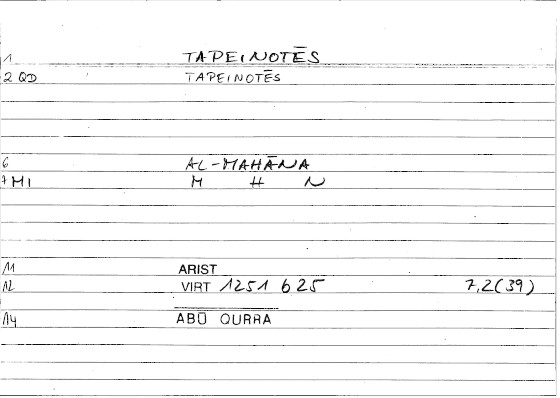 1 TAPEINOTĒS
2 QD TAPEINOTĒS
6 AL-MAHĀNA
7 MI M H N
11 ARIST
12 VIRT 1251 b 25 7,2(39)
14 ABŪ QURRA